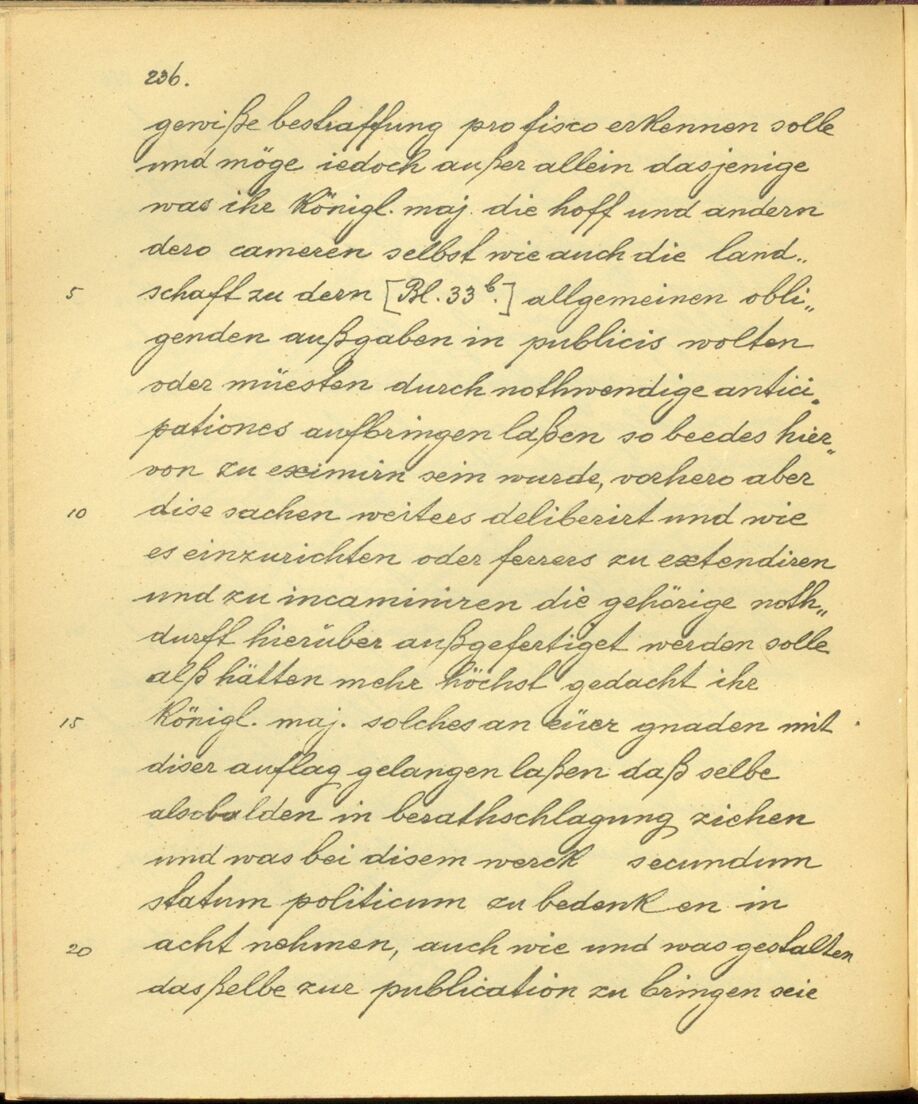 236.
gewiße bestraffung pro fisco erkennen solle
und möge iedoch außer allein dasjenige
was ihr Königl. maj. die hoff und andern
dero cameren selbst wie auch die land„
5 schafft zu dern [Bl. 33b.] allgemeinen obli„
genden außgaben in publicis wolten
oder müesten durch nothwendige antici„
pationes aufbringen laßen so beedes hier„
von zu eximirn sein wurde, vorhero aber
10 dise sachen weiters deliberirt und wie
es einzurichten oder ferrers zu extendiren
und zu incaminiren die gehörige noth„
durft hierüber außgefertiget werden solle
alß hätten mehr höchst gedacht ihr
15 Königl. maj. solches an eüer gnaden mit
diser auflag gelangen laßen daß selbe
alsobalden in berathschlagung ziehen
und was bei disem werck secundum
statum politicum zu bedenken in
20 acht nehmen, auch wie und was gestalten
dasßelbe zur publication zu bringen seie